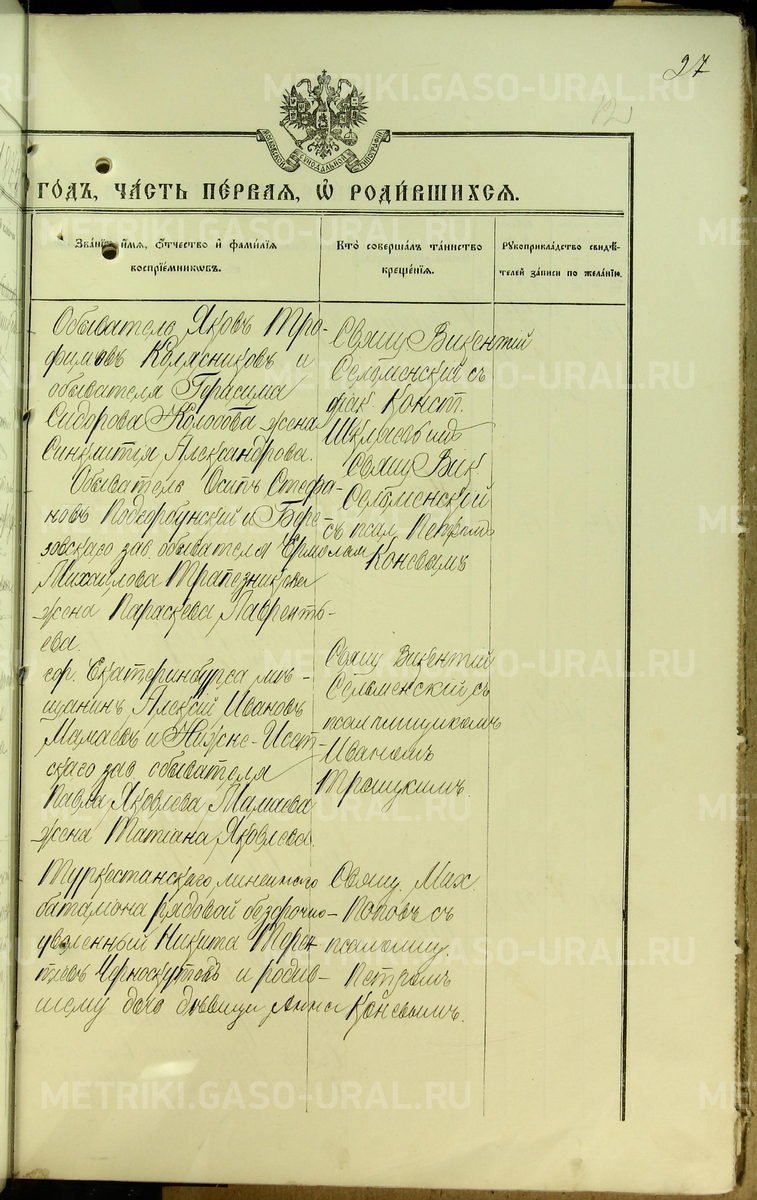 27
12
METRIKI.GASO-URAL.RU
МОСКОВСКОЙ СѴНОДАЛЬНОЙ ТИПОГРАФІИ
ГО́ДЪ, ЧА́СТЬ ПЕ́РВАЯ, Ѡ҆ РОДИ́ВШИХСЯ.
Зва́нїе, и҆́мя, ѻ҆́тчество и҆ фами́лїя
воспрїе́мникѡвъ.
Кто̀ соверша́лъ та́инство
креще́нїя.
Рꙋкоприкла́дство свидѣ́-
телей за́писи по жела́нїю.
Обыватель Яковъ Тро-
фимовъ Колясниковъ и
обывателя Герасима
Сидорова Колосова жена
Синклитія Александрова.
Свящ Викентій
Селменский съ
Конст.
Обыватель Осипъ Стефа-
новъ Подкорбунский и Бере-
зовскаго зав. обывателя Ермолая
Михаилова Трапезникова
жена Параскева Лаврентъ-
ева.
Свящ Вик.
Селменский
съ псал. Петромъ
Коневымъ
гор. Екатеринбурга мѣ-
щанинъ Алексій Ивановъ
Мамаевъ и Нижне-Исет-
скаго зав. обывателя
Павла Яковлева Мамаева
жена Татіана Яковлева.
Свящ Викентий
Селменский съ
псаломщикомъ
Иваномъ
Троицкимъ.
Туркестанскаго линейнаго
баталіона рядовой безсрочно-
уволенный Никита Терен
тьевъ Черноскутовъ и родив-
шему дочь дѣвица Анна
Свящ. Мих.
Поповъ съ
псаломщ.
Петромъ
Коневымъ.